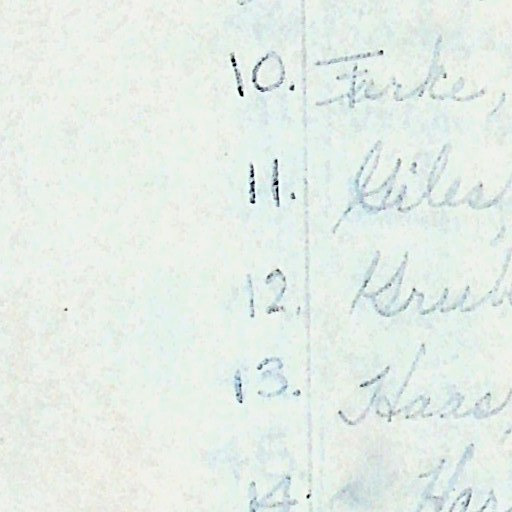 10. Farke,
11. Giles,
12.
13. Haas,
14